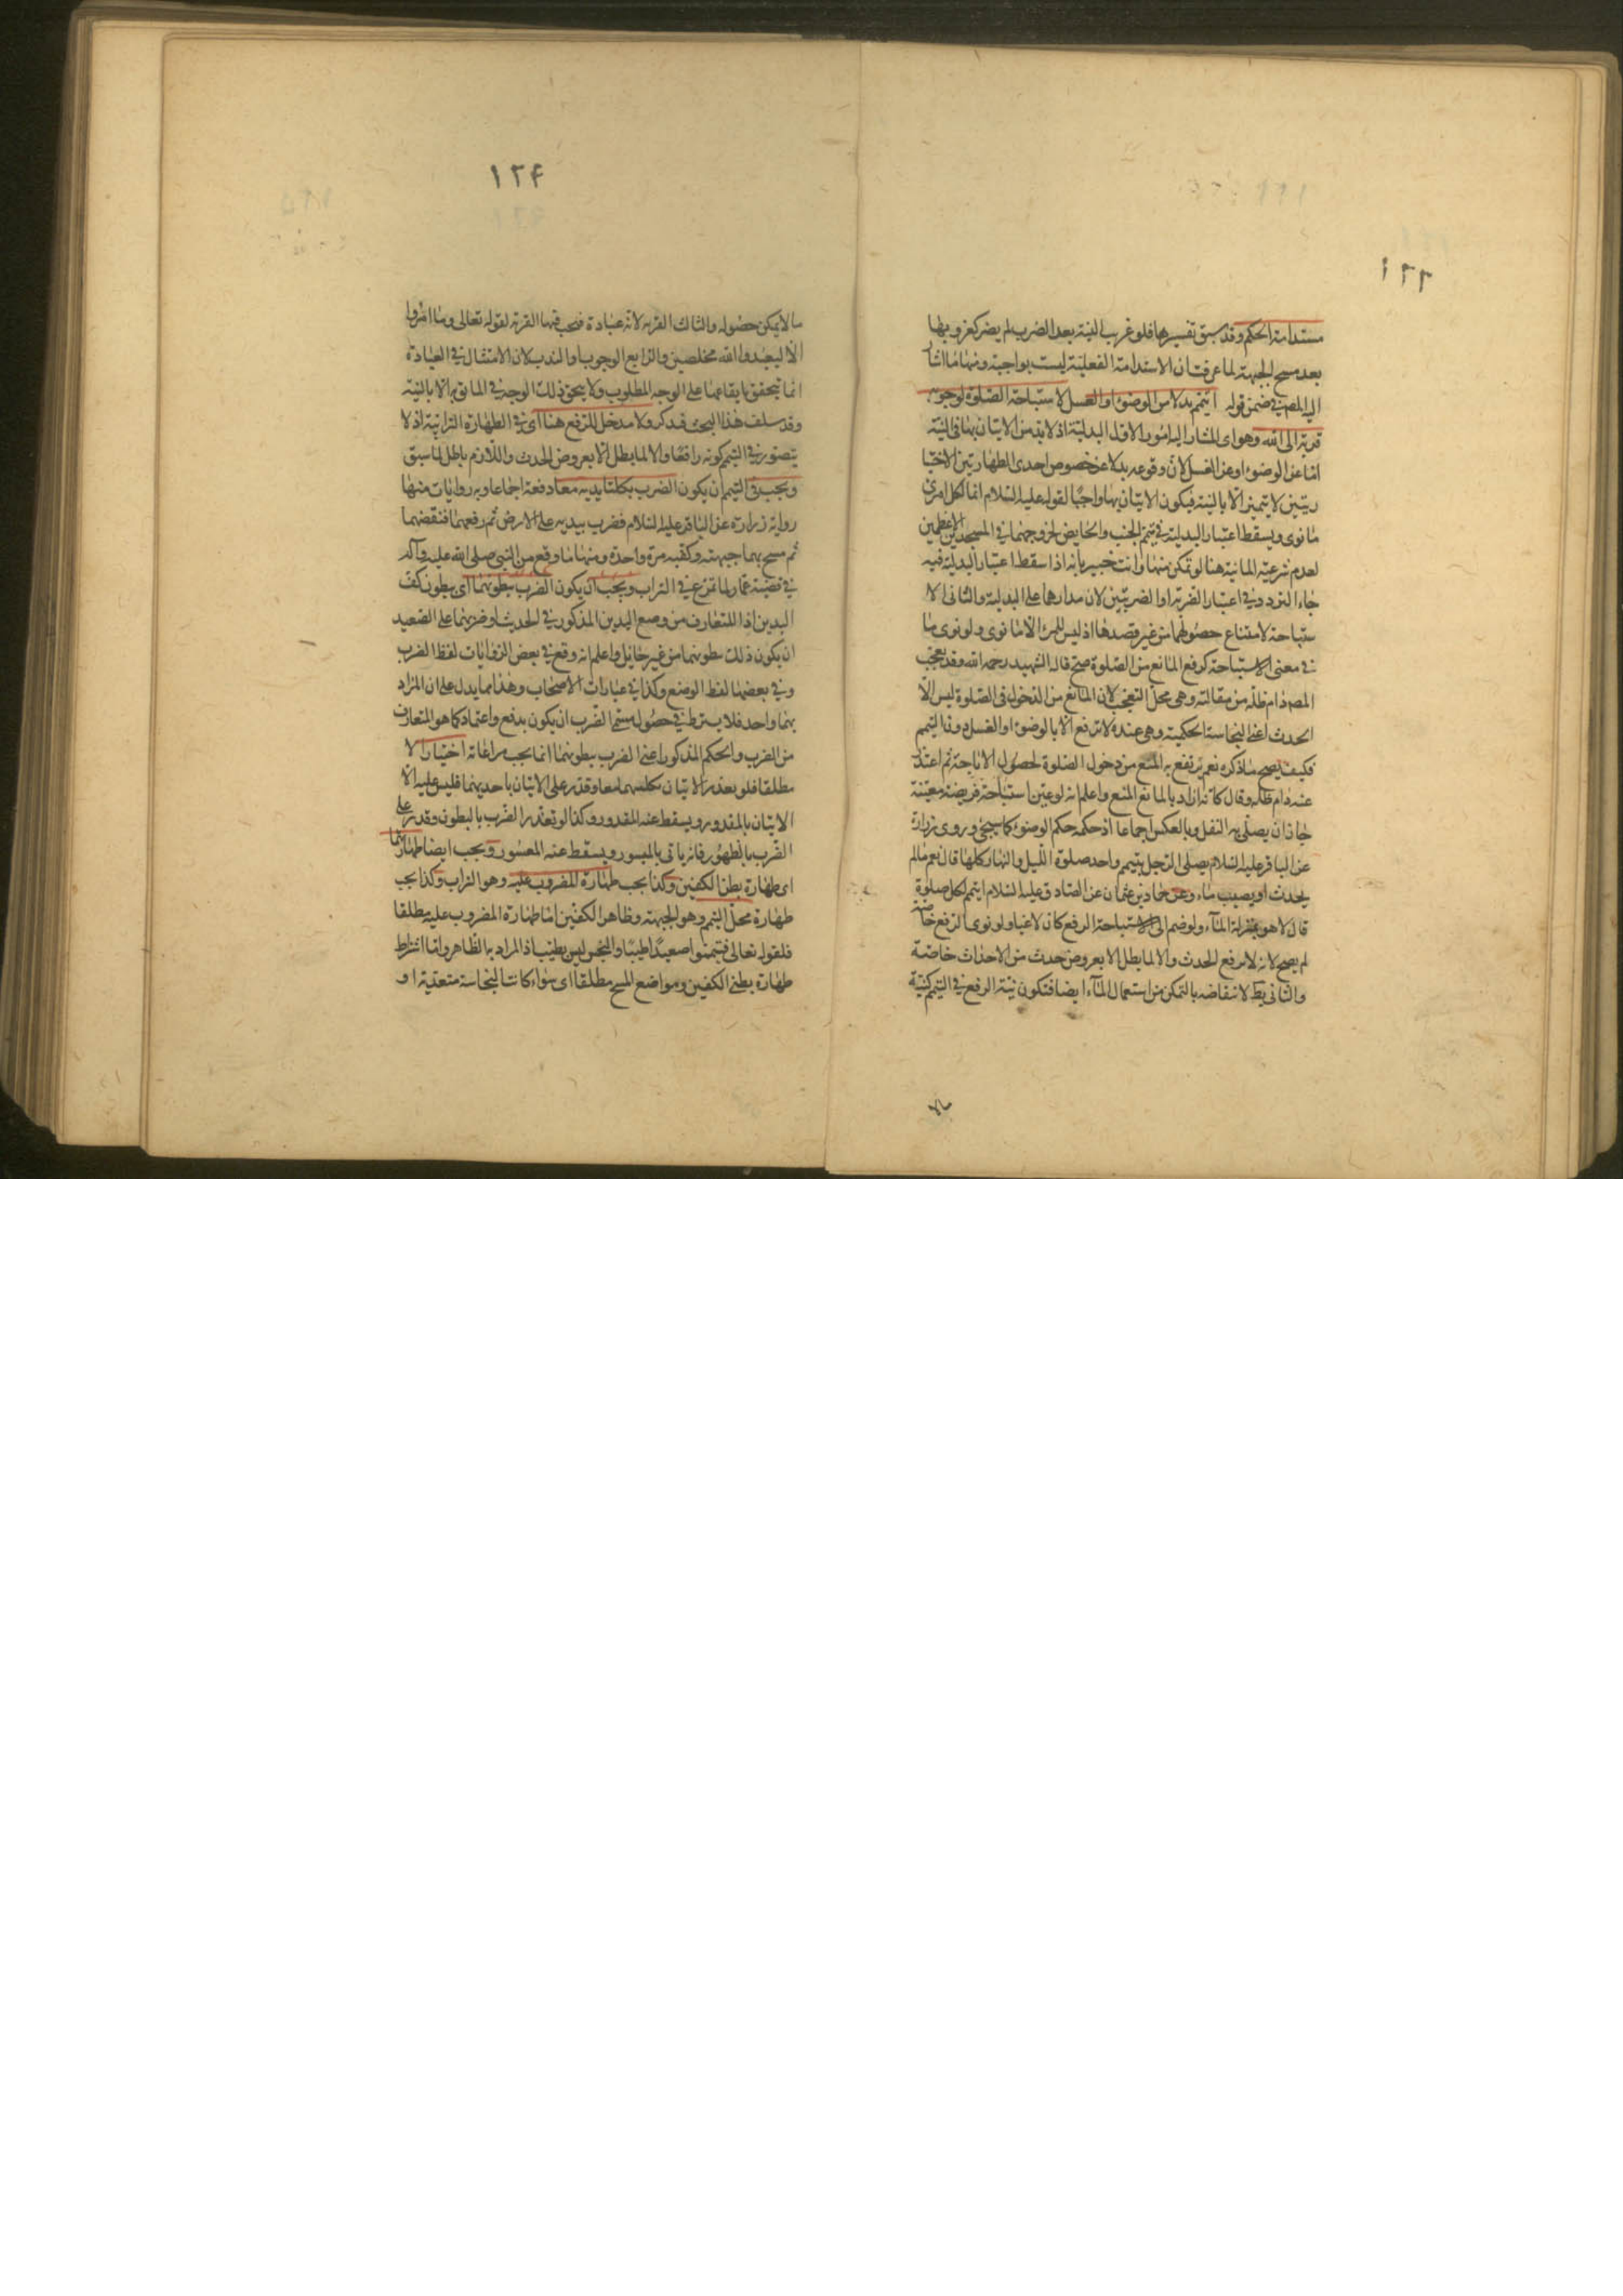 ١٢٣
مستدامة الحكم وقد سبق تفسيرها فلو غربت النية بعد الضرب لم يضر كغروبها
بعد مسح الجبهة لما عرفت ان الاستدامة الفعلية ليست بواجبة ومنها ما اشار
اليه المص في ضمن قوله اتيمم بدلا من الوضوء او الغسل لاستباحة الصلوة لوجوبه
قربة الى الله وهو اى المشار اليه امور الاول البدلية اذ لا بد من الاتيان بها في النية
اما عن الوضوء او عن الغسل لان وقوعه بدلا عن خصوص احدى الطهارتين الاختيا
ريتين لا يتميز الا بالنية فيكون الاتيان بها واجبا لقوله عليه السلام انما لكل امرئ
ما نوى ويسقط اعتبار البدلية في تيمم الجنب والحايض لخروجهما في المسجدين الاعظمين
لعدم شرعية المائية هنا لو تمكن منها وانت خبير بانه اذا سقط اعتبار البدلية فيه
جاء التردد في اعتبار الضربة او الضربتين لان مدارهما على البدلية والثانى الا
ستباحة لامتناع حصولها من غير قصدها اذ ليس للمرء الا ما نوى ولو نوى ما
في معنى الاستباحة كرفع المانع من الصلوة صح قاله الشهيد رحمه الله وقد تعجب
المص دام ظله من مقالته وهى محل التعجب لان المانع من الدخول في الصلوة ليس الا
الحدث اعنى النجاسة الحكمية وهى عنده لا ترتفع الا بالوضوء او الغسل دون التيمم
فكيف يصح ما ذكره نعم يرتفع به المنع من دخول الصلوة لحصول الاباحة ثم اعتذر
عنه دام ظله وقال كانه اراد بالمانع المنع واعلم انه لو عين استباحة فريضة معينة
جاز ان يصلى به النفل وبالعكس اجماعا اذ حكمه حكم الوضوء كما سيجئ وروى زرارة
عن الباقر عليه السلام يصلى الرجل بتيمم واحد صلوة الليل والنهار كلها قال نعم مالم
يحدث او يصيب ماء وعن حماد بن عثمان عن الصادق عليه السلام ايتيمم لكل صلوة
قال لا هو بمنزلة الماء ولو ضم الى الاستباحة الرفع كان لاغيا ولو نوى الرفع خاصة
لم يصح لانه لا يرفع الحدث والا لما بطل الا بعروض حدث من الاحداث خاصة
والثانى بط لانتقاضه بالتمكن من استعمال الماء ايضا فتكون نية الرفع في التيمم كنية
١٢۴
ما لا يمكن حصوله والثالث القربة لانه عبادة فيجب فيها القربة لقوله تعالى وما امروا
الا ليعبدوا الله مخلصين والرابع الوجوب او الندب لان الامتثال في العبادة
انما يتحقق بايقاعها على الوجه المطلوب ولا يتحقق ذلك الوجه في الماتى به الا بالنية
وقد سلف هذا البحث فيذكر ولا مدخل للرفع هنا اى في الطهارة الترابية اذ لا
يتصور في التيمم كونه رافعا والا لما بطل الا بعروض الحدث واللازم باطل لما سبق
ويجب في التيمم ان يكون الضرب بكلتا يديه معا دفعة اجماعا وبه روايات منها
رواية زرارة عن الباقر عليه السلام فضرب بيديه على الارض ثم رفعهما فنفضهما
ثم مسح بهما جبهته وكفيه مرة واحدة ومنها ما وقع من النبى صلى الله عليه وآله
في قضية عمار لما تمرغ في التراب ويجب ان يكون الضرب ببطونهما اى ببطون كف
اليدين اذا المتعارف من وضع اليدين المذكور في الحديث او ضربهما على الصعيد
ان يكون ذلك ببطونهما من غير حايل واعلم انه وقع في بعض الروايات لفظ الضرب
وفي بعضها لفظ الوضع وكذا في عبارات الاصحاب وهذا مما يدل على ان المراد
بهما واحد فلا يشترط في حصول مسمى الضرب ان يكون بدفع واعتماد كما هو المتعارف
من الضرب والحكم المذكور اعنى الضرب ببطونهما انما يجب مراعاته اختيارا لا
مطلقا فلو تعذر الاتيان بكلتيهما معا وقدر على الاتيان باحديهما فليس عليه الا
الاتيان بالمقدور ويسقط عنه المقدور وكذا لو تعذر الضرب بالبطون وقدر على
الضرب بالظهور فانه ياتى بالميسور ويسقط عنه المعسور ويجب ايضا طهارتهما
اى طهارة بطن الكفين وكذا يجب طهارة المضروب عليه وهو التراب وكذا يجب
طهارة محل التيمم وهو الجبهة وظاهر الكفين اما طهارة المضروب عليه مطلقا
فلقوله تعالى فتيمموا صعيدا طيبا والنجس ليس بطيب اذ المراد به الطاهر واما اشتراط
طهارة بطنى الكفين ومواضع المسح مطلقا اى سواء كانت النجاسة متعدية او